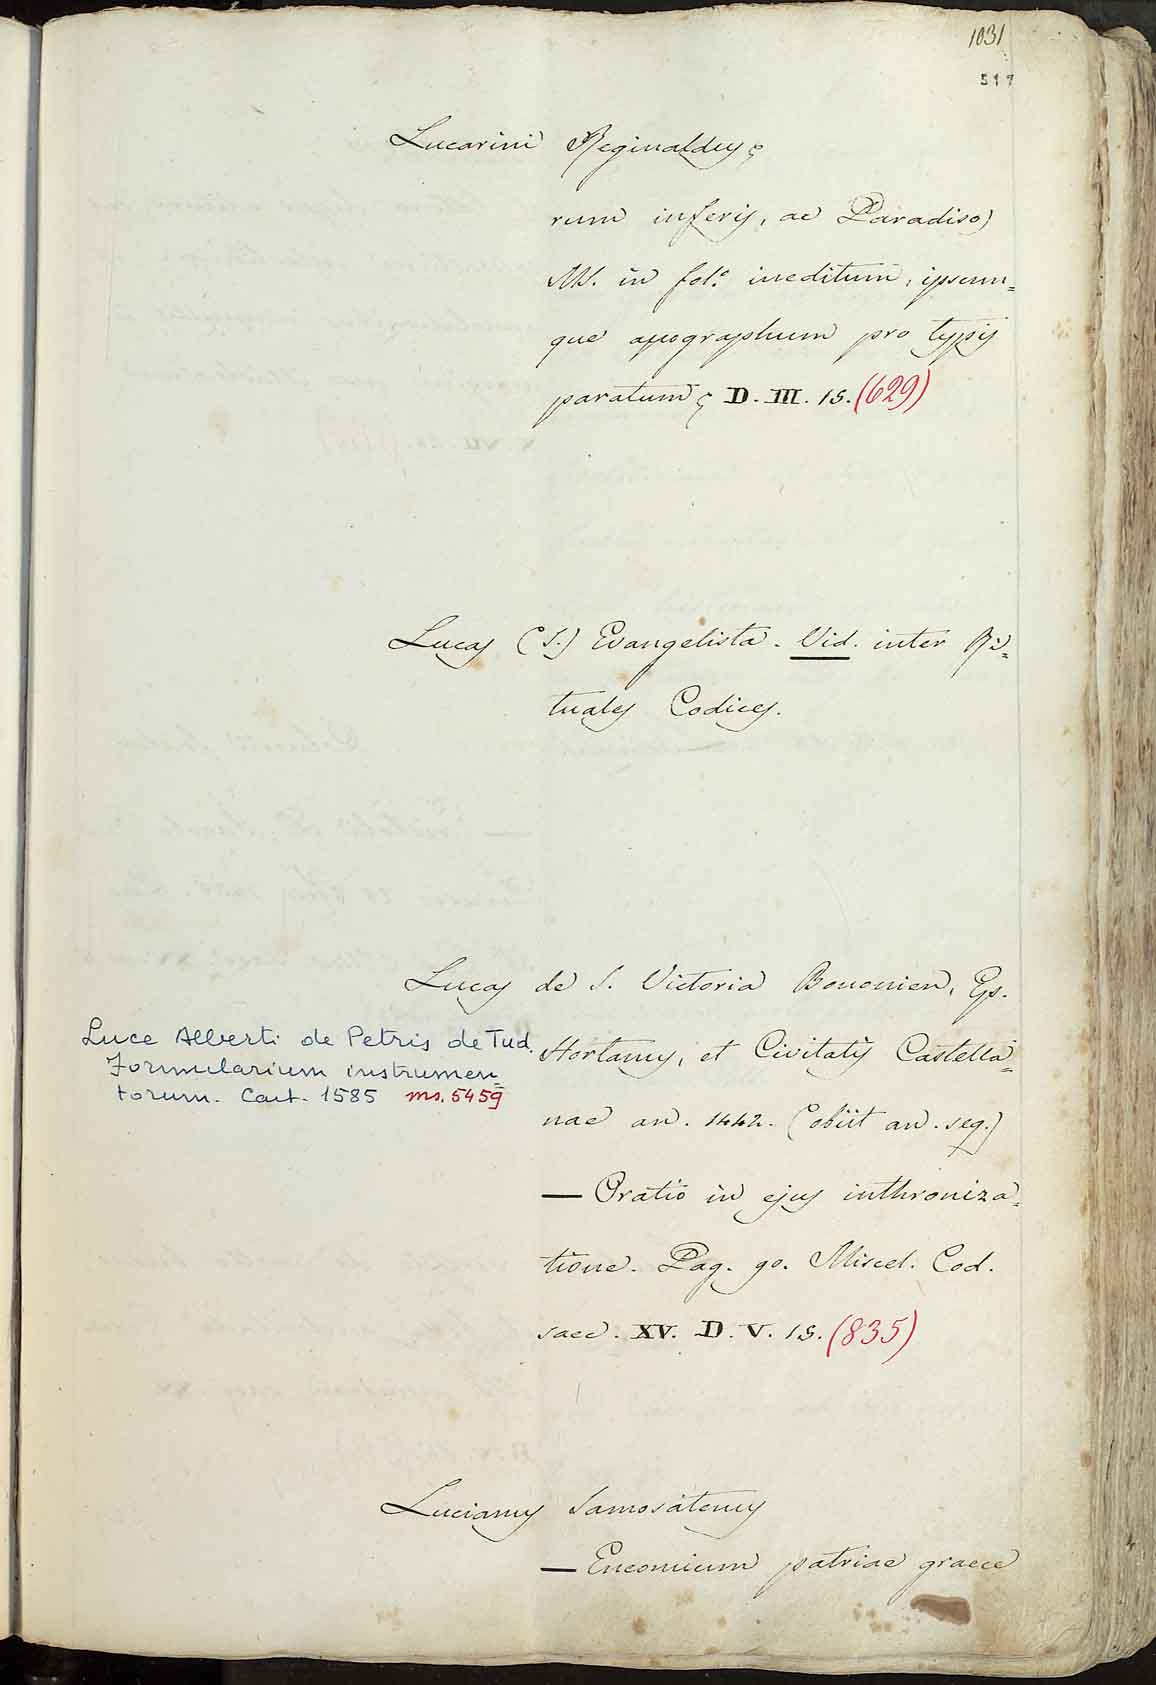 1031
517
Lucarini Reginaldus
rum inferis, ac Paradiso
MS. in fol.º ineditum, ipsum=
que apographum pro typis
paratum D. III. 15. (629)
Lucas (S.) Evangelista. Vid. inter Ri=
tuales Codices.
Lucas de S. Victoria Bononien, Ep.
Hortanus, et Civitatis Castella=
nae an. 1442. (obiit an. seq.)
— Oratio in ejus inthroniza=
tione. Pag. 90. Miscel. Cod.
saec. XV. D. V. 15. (835)
Luce Alberti de Petris de Tud.
Formularium instrumen=
torum. Cart. 1585 ms. 5459
Lucianus Samosatenus
— Encomium patriae graece